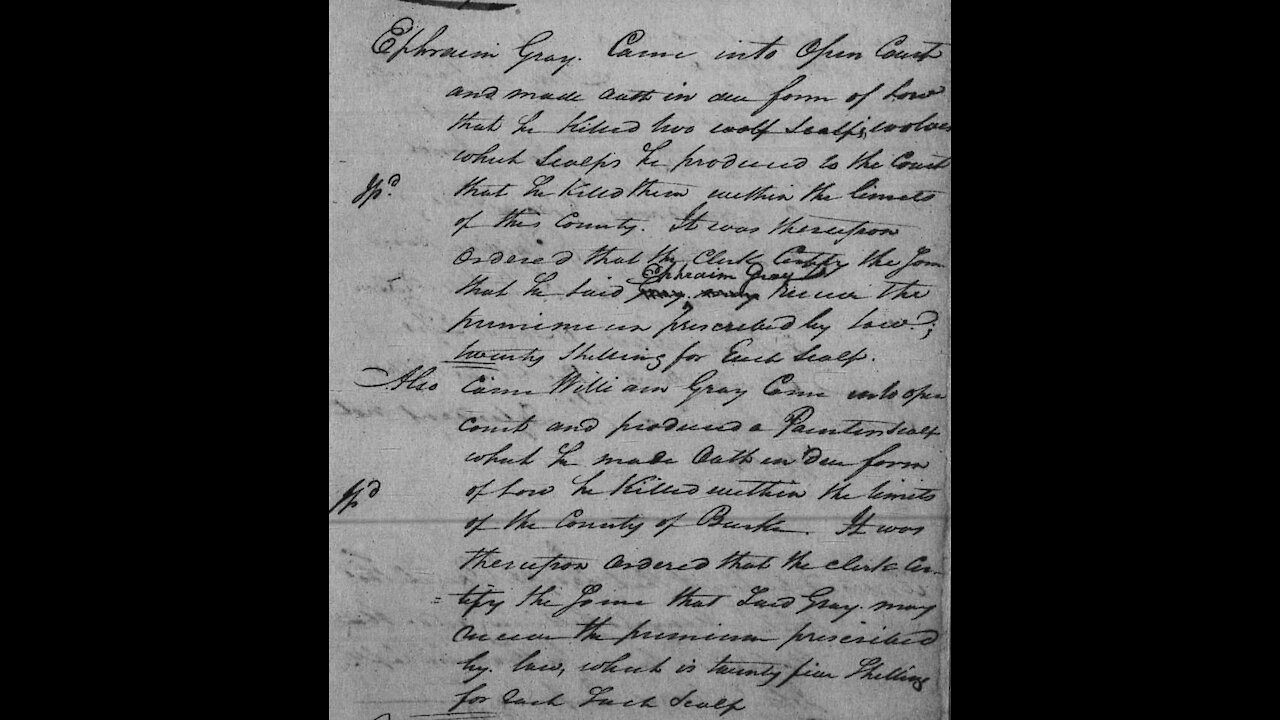 Ephraim Gray. Came into Open Court
and made Oath in due form of Law
that he Killed two wolf Scalps, wolves
which Scalps he produced to the Court
that he Killed them within the limets
of this County. It was thereupon
Ordered that the Clerk Certify the Same
Ephraim Gray
that he Said receive the
premimeum prescribed by Law;
twenty Shilling for Each Scalp.
Also Came William Gray Came into open
court and produced a Painter Scalp
which he made Oath in due form
of Law he Killed within the limits
of the County of Burke. It was
thereupon Ordered that the clerk Cer-
=tify the Same that Said Gray may
receive the premium prescribed
by law, which is twenty five Shilling
for Each Such Scalp